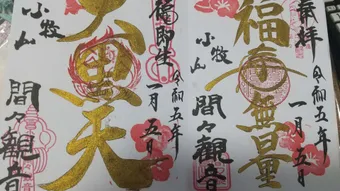 奉拝
福寿無量
小牧山
間々観音
令和五年
一月五日
大黒天
小牧山
間々観音
令和五年
一月五日